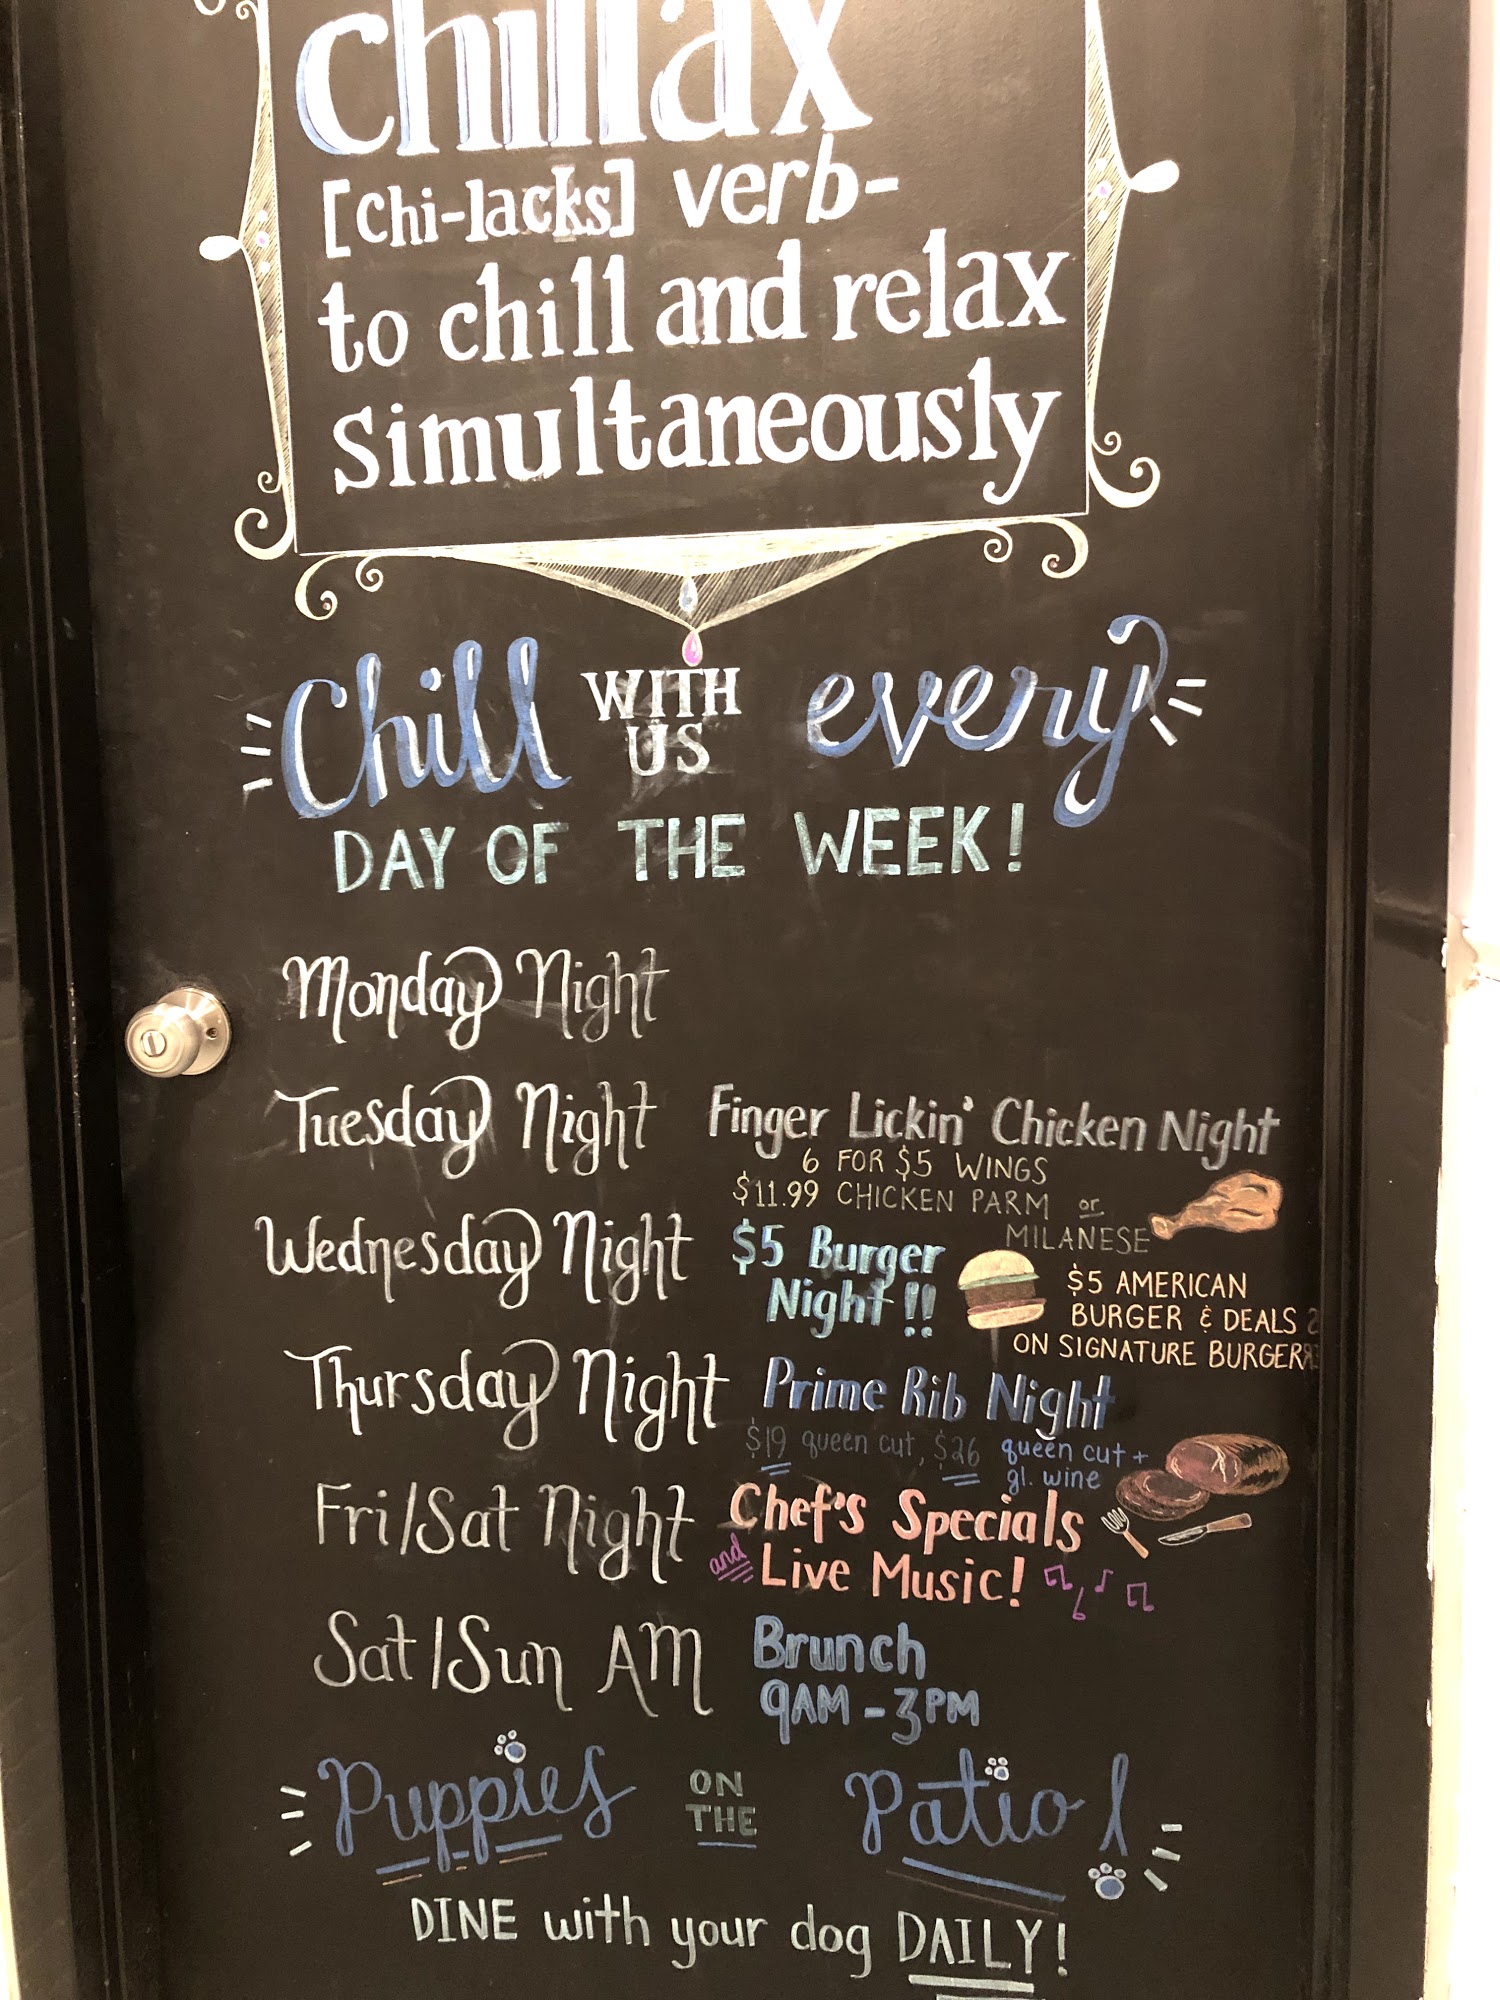 chillax
[chi-lacks] verb-
to chill and relax
simultaneously
Chill WITH US every
DAY OF THE WEEK!
Monday Night
Tuesday Night Finger Lickin' Chicken Night
6 FOR $5 WINGS
$11.99 CHICKEN PARM or
MILANESE
Wednesday Night $5 Burger
Night!!
$5 AMERICAN
BURGER & DEALS
ON SIGNATURE
Thursday Night Prime Rib Night
$19 queen cut, $26 queen cut +
gl. wine
Fri/Sat Night Chef's Specials
and Live Music!
Sat/Sun AM Brunch
9AM - 3PM
Puppies ON THE Patio!
DINE with your dog DAILY!